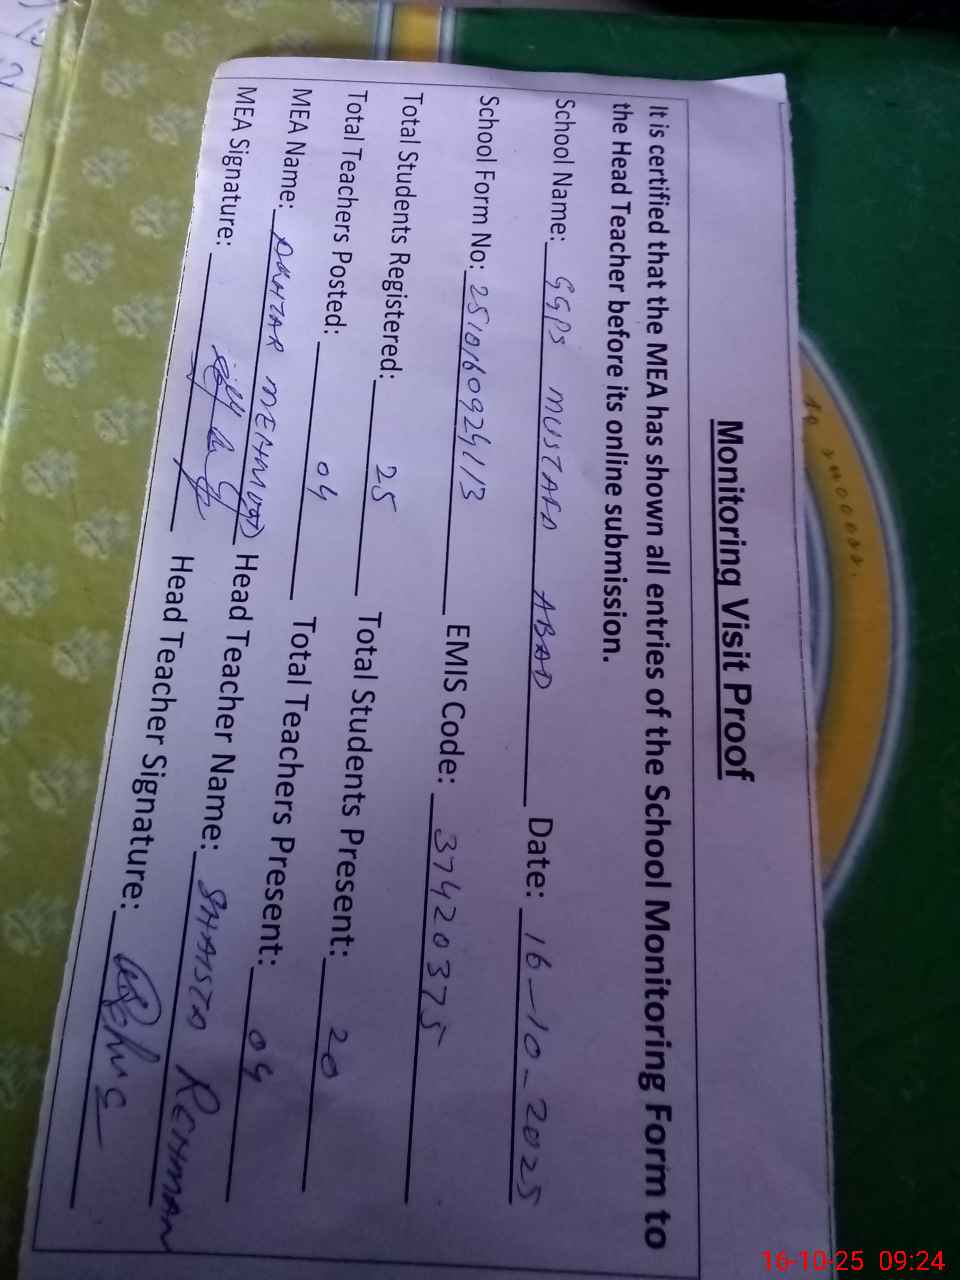 Monitoring Visit Proof
It is certified that the MEA has shown all entries of the School Monitoring Form to
the Head Teacher before its online submission.
School Name: GGPS MUSTAFA ABAD Date: 16-10-2025
School Form No: 2510160924113 EMIS Code: 37420375
Total Students Registered: 25 Total Students Present: 20
Total Teachers Posted: 04 Total Teachers Present: 04
MEA Name: MEHMOOD Head Teacher Name: SHAISTA REHMAN
MEA Signature: Head Teacher Signature:
16-10-25 09:24